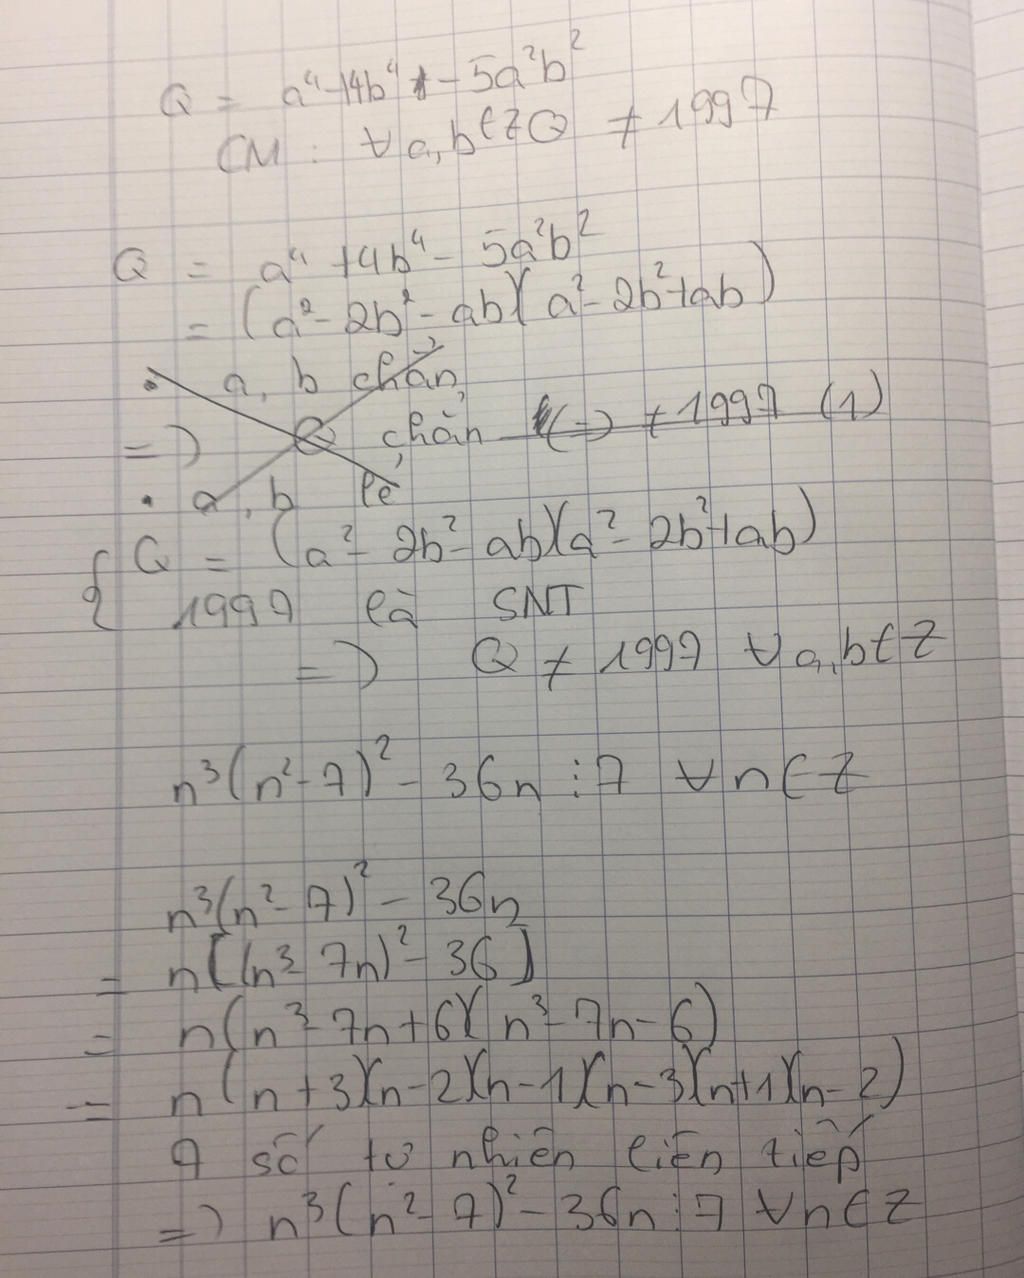 Q = a⁴ - 14b⁴ - 5a²b²
CM : ∀ a, b ∈ Z Q ≠ 1997
Q = a⁴ + 4b⁴ - 5a²b²
= (a² - 2b² - ab)(a² - 2b² + ab)
• a, b chẵn
=> Q chẵn (=) ≠ 1997 (1)
• a, b lẻ
{ Q = (a² - 2b² - ab)(a² - 2b² + ab)
1997 là SNT
=> Q ≠ 1997 ∀ a, b ∈ Z
n³(n² - 7)² - 36n ⋮ 7 ∀ n ∈ Z
n³(n² - 7)² - 36n
= n[(n³ - 7n)² - 36]
= n(n³ - 7n + 6)(n³ - 7n - 6)
= n(n + 3)(n - 2)(n - 1)(n - 3)(n + 1)(n - 2)
7 số tự nhiên liên tiếp
=> n³(n² - 7)² - 36n ⋮ 7 ∀ n ∈ Z